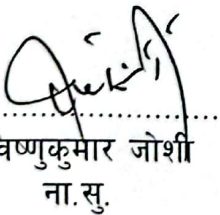 ..........................
वष्णुकुमार जोशी
ना.सु.